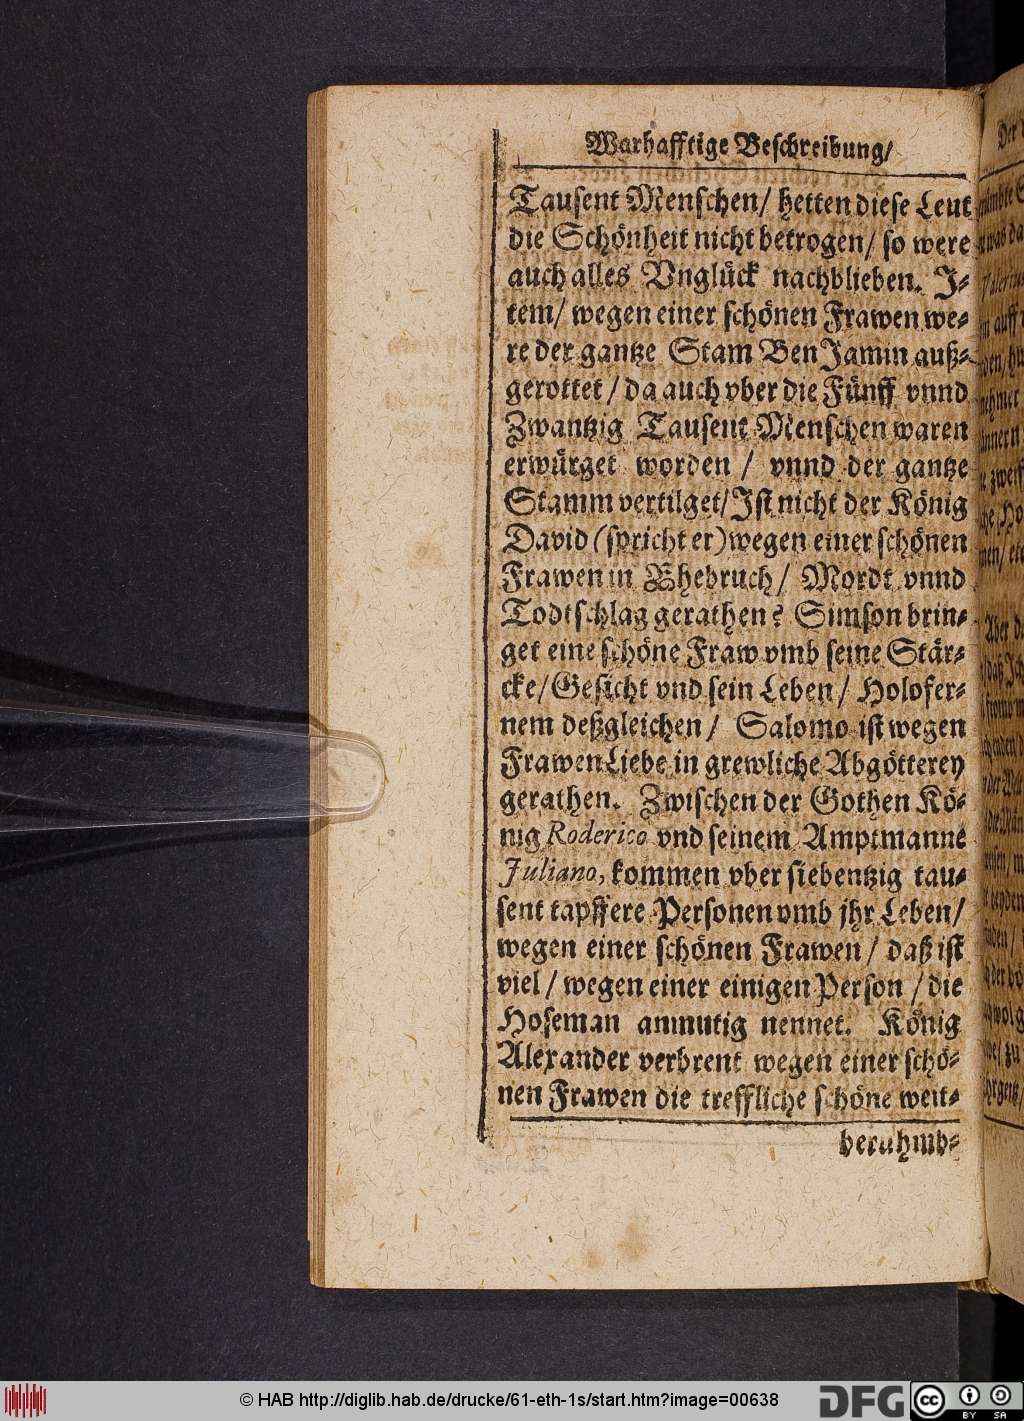 Warhafftige Beschreibung/
Tausent Menschen/ hetten diese Leut
die Schönheit nicht betrogen/ so were
auch alles Vnglück nachblieben. J-
tem/ wegen einer schönen Frawen we-
re der gantze Stam Ben Jamin auß-
gerottet/ da auch vber die Fünff vnnd
Zwantzig Tausent Menschen waren
erwürget worden / vnnd der gantze
Stamm vertilget/ Jst nicht der König
David (spricht er) wegen einer schönen
Frawen in Ehebruch/ Mordt vnnd
Todtschlag gerathen? Simson brin-
get eine schöne Fraw vmb seine Stär-
cke/ Gesicht vnd sein Leben/ Holofer-
nem deßgleichen/ Salomo ist wegen
Frawen Liebe in grewliche Abgötterey
gerathen. Zwischen der Gothen Kö-
nig Roderico vnd seinem Amptmanne
Juliano, kommen vber siebentzig tau-
sent tapffere Personen vmb jhr Leben/
wegen einer schönen Frawen/ daß ist
viel/ wegen einer einigen Person/ die
Hoseman anmutig nennet. König
Alexander verbrent wegen einer schö-
nen Frawen die treffliche schöne weit-
beruhmb-
© HAB http://diglib.hab.de/drucke/61-eth-1s/start.htm?image=00638
DFG
cc BY SA